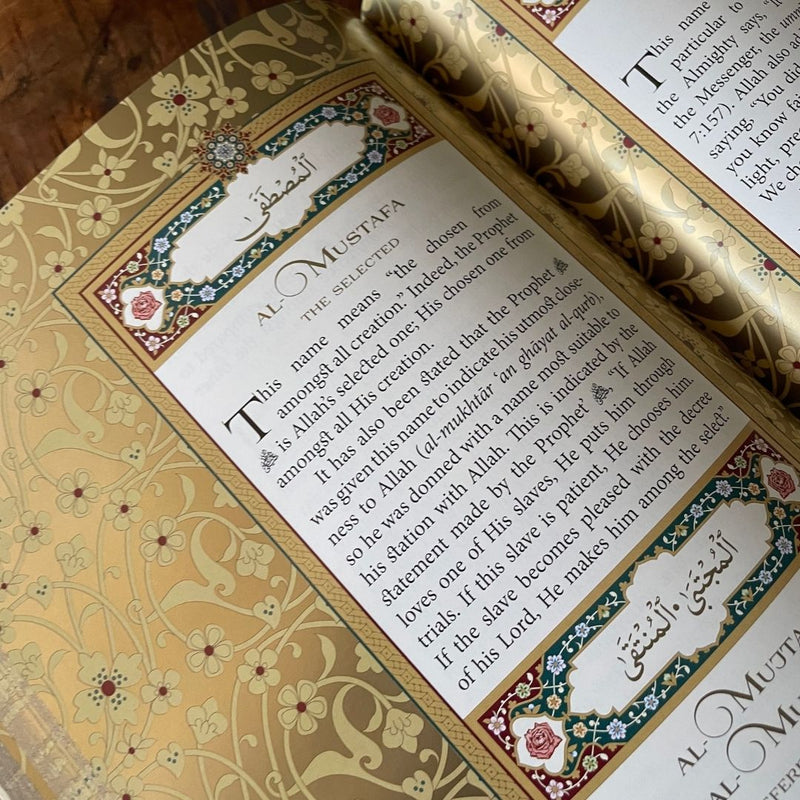 ٱلْمُصْطَفَىٰ
AL-MUSTAFA
THE SELECTED
This name means “the chosen from
amongst all creation.” Indeed, the Prophet
ﷺ is Allah's selected one; His chosen one from
amongst all His creation.
It has also been stated that the Prophet ﷺ
was given this name to indicate his utmost close-
ness to Allah (al-mukhtār ‘an ghāyat al-qurb),
so he was donned with a name most suitable to
his station with Allah. This is indicated by the
statement made by the Prophet’ ﷺ, “If Allah
loves one of His slaves, He puts him through
trials. If this slave is patient, He chooses him.
If the slave becomes pleased with the decree
of his Lord, He makes him among the select.”
ٱلْمُجْتَبَىٰ • ٱلْمُنْتَقَىٰ
AL-MUJTA
AL-MU
This name
particular to
the Almighty says, “
the Messenger, the
7:157). Allah also ad
saying, “You did
you know fa
light, pre
We ch